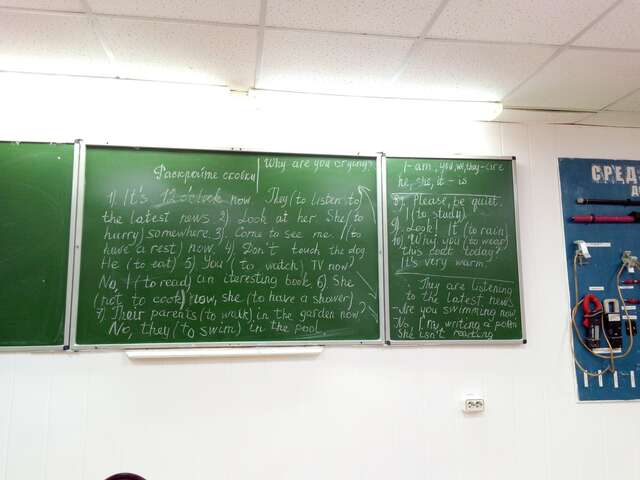 Раскройте скобки
Why are you crying?
1) It's 12 o'clock now. They (to listen to)
the latest news 2) Look at her. She (to
hurry) somewhere. 3) Come to see me. I (to
have a rest) now. 4) Don't touch the dog.
He (to eat) 5) You (to watch) TV now?
No, I (to read) an iteresting book. 6) She
(not to cook) now, she (to have a shower)
7) Their parents (to walk) in the garden now?
No, they (to swim) in the pool.
I - am, you, we, they - are
he, she, it - is
8) Please, be quiet.
I (to study)
9) Look! It (to rain)
10) Why you (to wear)
this coat today?
It's very warm.
They are listening
to the latest news
- Are you swimming now
- No, I'm writing a
She isn't
СРЕД